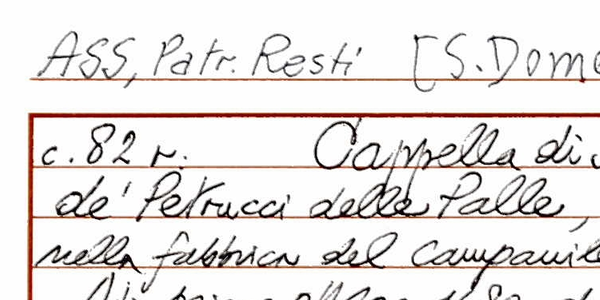 ASS, Patr. Resti [S. Dome
c. 82 r. Cappella di
de' Petrucci delle Palle,
nella fabbrica del campanile